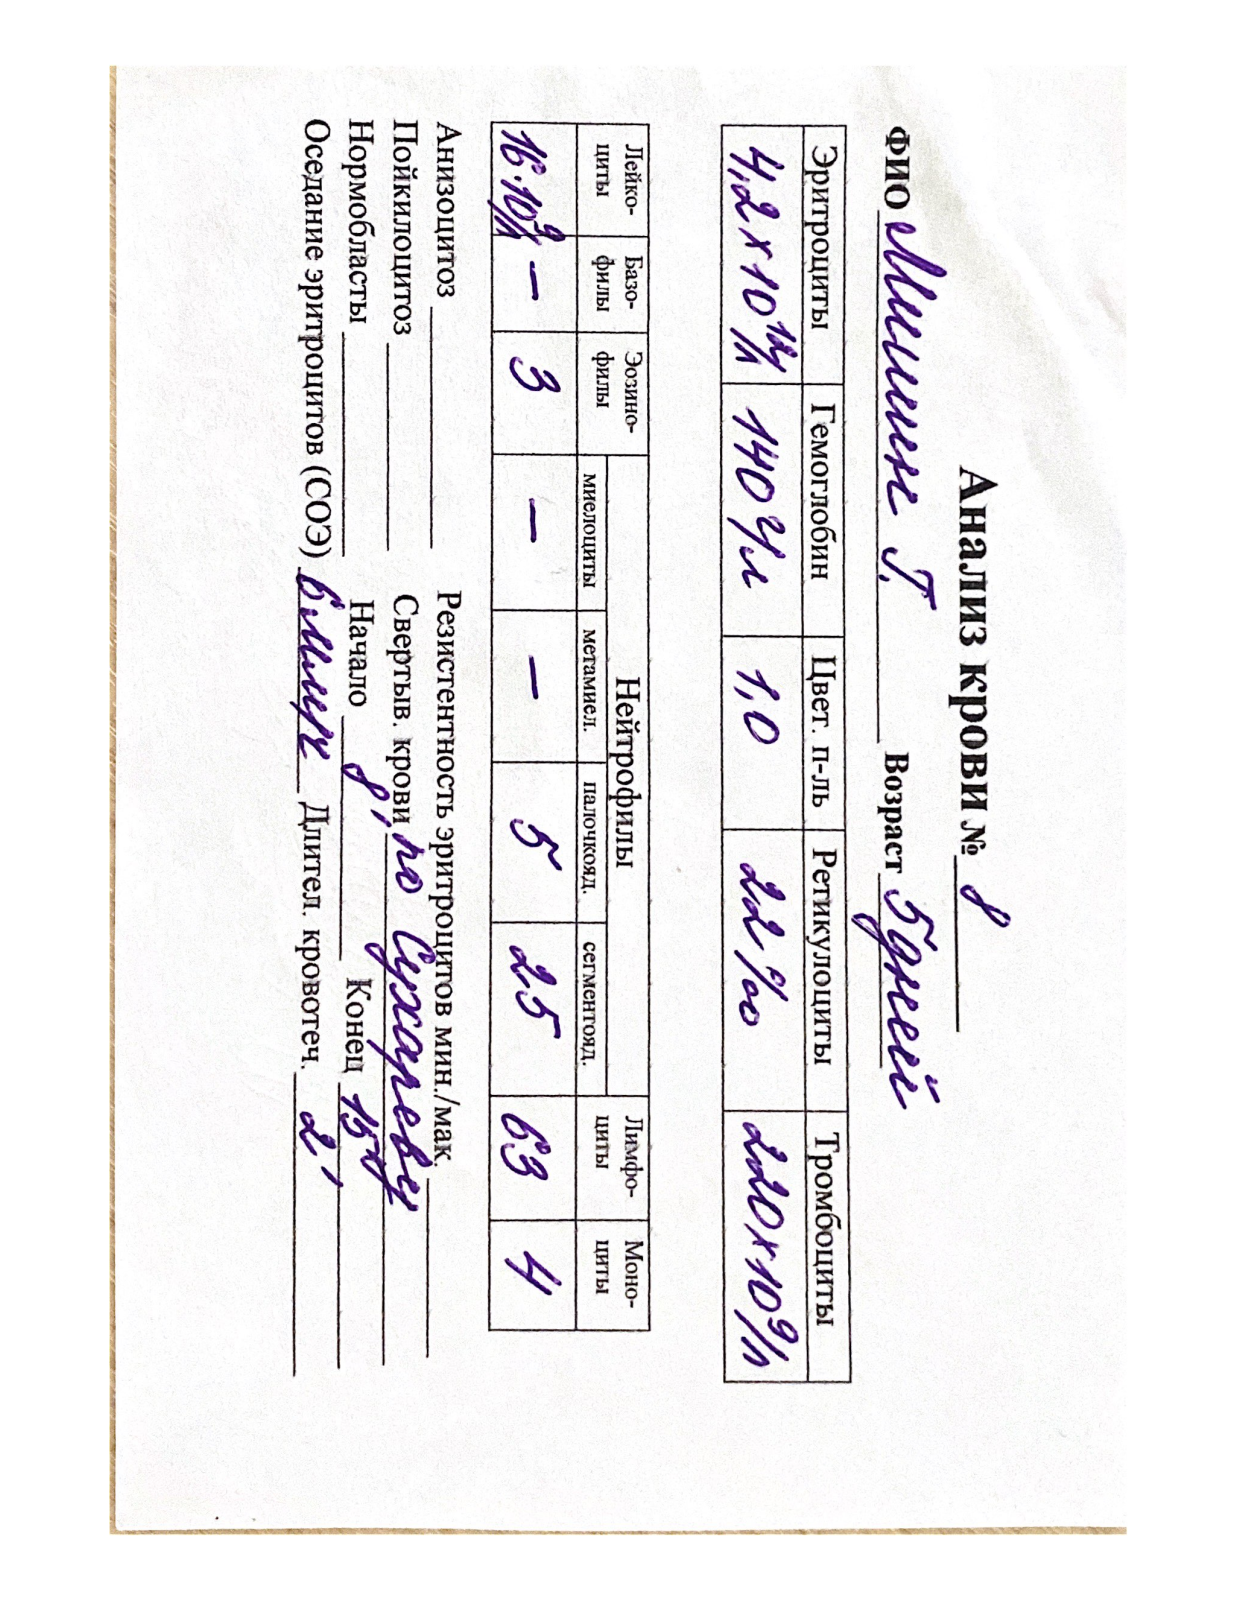 Анализ крови № 8
ФИО Мишин Г. Возраст 5 дней
Эритроциты Гемоглобин Цвет. п-ль Ретикулоциты Тромбоциты
4,2 х 10¹²/л 140 г/л 1,0 22 ‰ 220 х 10⁹/л
Лейко-циты Базо-филы Эозино-филы Нейтрофилы Лимфо-циты Моно-циты
миелоциты метамиел. палочкояд. сегментояд.
16·10⁹/л – 3 – – 5 25 63 4
Анизоцитоз Резистентность эритроцитов мин./мак.
Пойкилоцитоз Свертыв. крови по Сухареву
Нормобласты Начало 8' Конец
Оседание эритроцитов (СОЭ) Длител. кровотеч. 2'